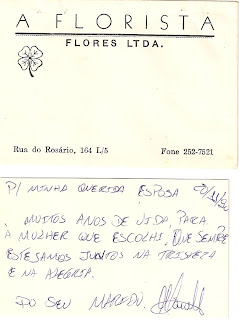 A FLORISTA
FLORES LTDA.
Rua do Rosário, 164 L/5 Fone 252-7521
P/ MINHA QUERIDA ESPOSA
MUITOS ANOS DE VIDA PARA
A MULHER QUE ESCOLHI, QUE SEMPRE
ESTEJAMOS JUNTOS NA TRISTEZA
E NA ALEGRIA.
DO SEU MARIDO.